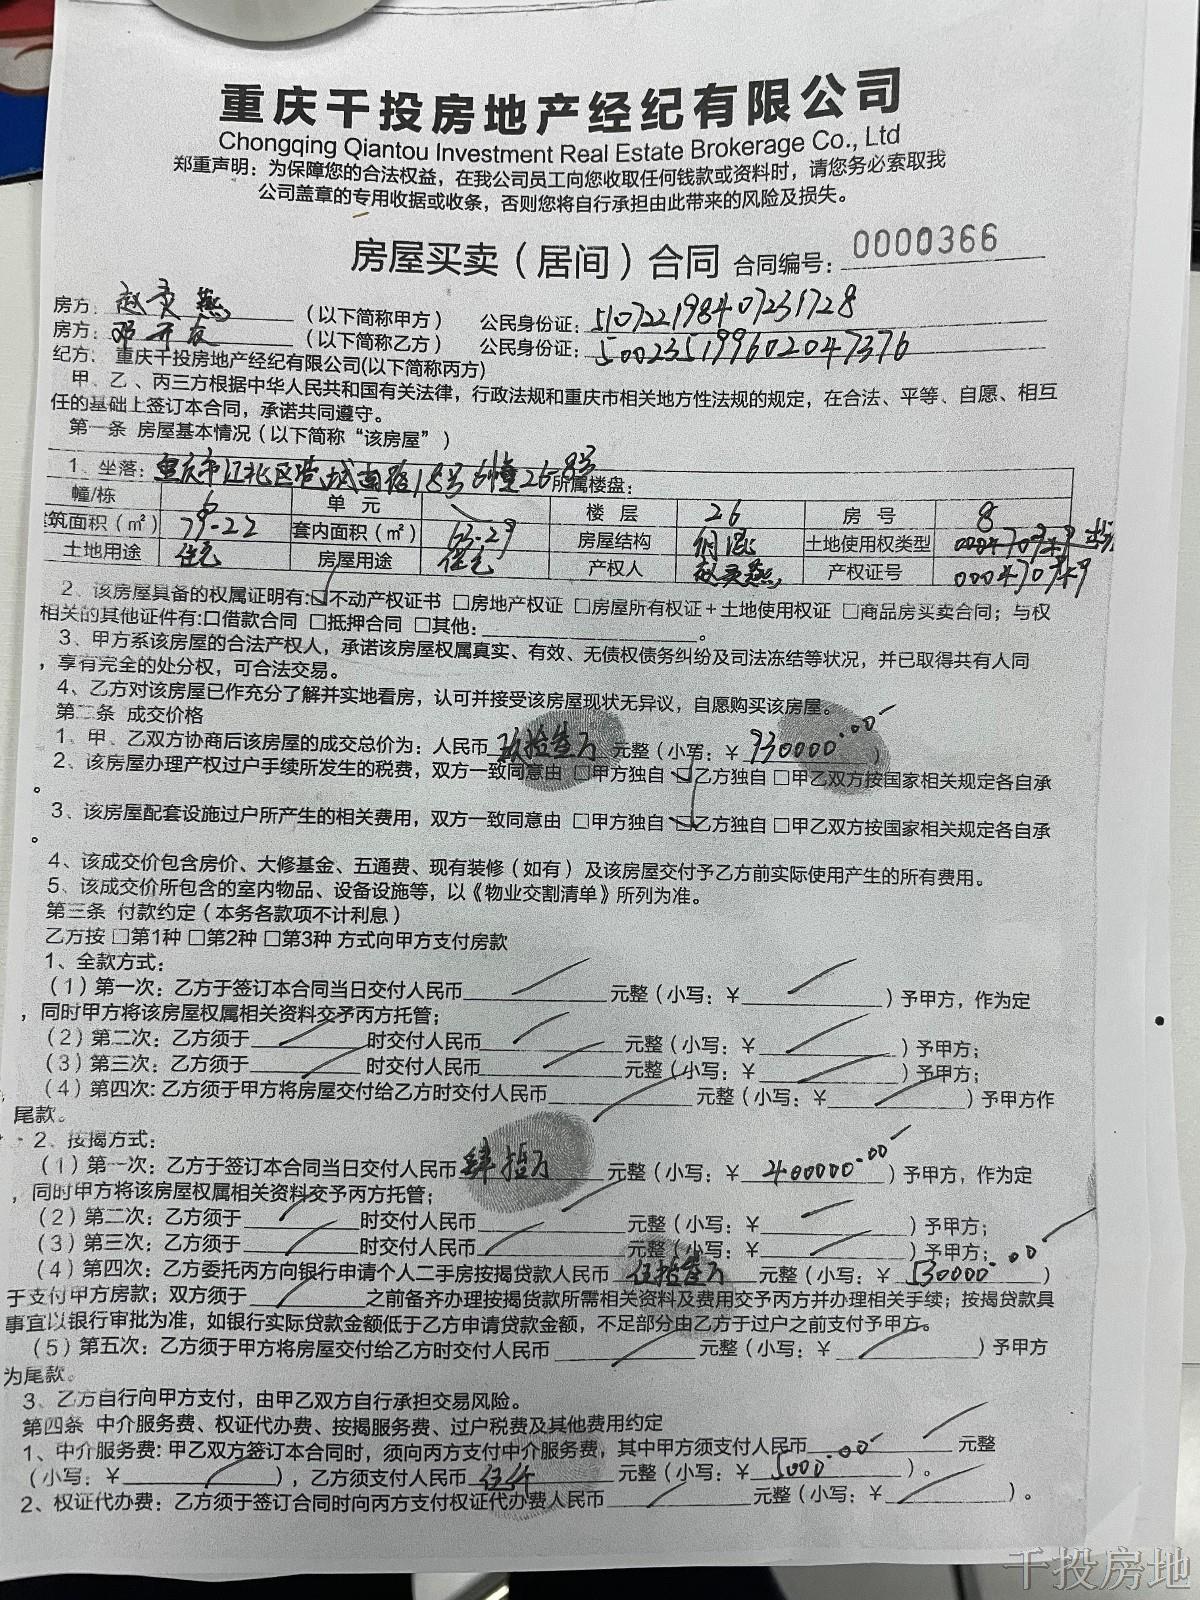 重庆干投房地产经纪有限公司
Chongqing Qiantou Investment Real Estate Brokerage Co., Ltd
郑重声明：为保障您的合法权益，在我公司员工向您收取任何钱款或资料时，请您务必索取我
公司盖章的专用收据或收条，否则您将自行承担由此带来的风险及损失。
房屋买卖（居间）合同 合同编号：0000366
房方：赵灵燕（以下简称甲方） 公民身份证：510722198407231728
房方：邓开友（以下简称乙方） 公民身份证：500235199602047376
纪方：重庆干投房地产经纪有限公司(以下简称丙方)
甲、乙、丙三方根据中华人民共和国有关法律，行政法规和重庆市相关地方性法规的规定，在合法、平等、自愿、相互
任的基础上签订本合同，承诺共同遵守。
第一条 房屋基本情况（以下简称“该房屋”）
1、坐落：重庆市江北区港城南路18号6幢26-8号 所属楼盘：
幢/栋 6 单 元 楼 层 26 房 号 8
筑面积（㎡） 79.22 套内面积（㎡） 63.29 房屋结构 钢混 土地使用权类型
土地用途 住宅 房屋用途 住宅 产权人 赵灵燕 产权证号 000470749
2、该房屋具备的权属证明有:□不动产权证书 □房地产权证 □房屋所有权证＋土地使用权证 □商品房买卖合同；与权
相关的其他证件有:□借款合同 □抵押合同 □其他:。
3、甲方系该房屋的合法产权人，承诺该房屋权属真实、有效、无债权债务纠纷及司法冻结等状况，并已取得共有人同
，享有完全的处分权，可合法交易。
4、乙方对该房屋已作充分了解并实地看房，认可并接受该房屋现状无异议，自愿购买该房屋。
第二条 成交价格
1、甲、乙双方协商后该房屋的成交总价为：人民币玖拾叁万元整（小写：￥930000.00）
2、该房屋办理产权过户手续所发生的税费，双方一致同意由 □甲方独自 □乙方独自 □甲乙双方按国家相关规定各自承
。
3、该房屋配套设施过户所产生的相关费用，双方一致同意由 □甲方独自 □乙方独自 □甲乙双方按国家相关规定各自承
。
4、该成交价包含房价、大修基金、五通费、现有装修（如有）及该房屋交付予乙方前实际使用产生的所有费用。
5、该成交价所包含的室内物品、设备设施等，以《物业交割清单》所列为准。
第三条 付款约定（本务各款项不计利息）
乙方按 □第1种 □第2种 □第3种 方式向甲方支付房款
1、全款方式：
（1）第一次：乙方于签订本合同当日交付人民币元整（小写：￥）予甲方，作为定
，同时甲方将该房屋权属相关资料交予丙方托管；
（2）第二次：乙方须于时交付人民币元整（小写：￥）予甲方；
（3）第三次：乙方须于时交付人民币元整（小写：￥）予甲方；
（4）第四次: 乙方须于甲方将房屋交付给乙方时交付人民币元整（小写：￥）予甲方作
尾款。
2、按揭方式：
（1）第一次：乙方于签订本合同当日交付人民币肆拾万元整（小写：￥400000.00）予甲方，作为定
，同时甲方将该房屋权属相关资料交予丙方托管；
（2）第二次：乙方须于时交付人民币元整（小写：￥）予甲方；
（3）第三次：乙方须于时交付人民币元整（小写：￥）予甲方；
（4）第四次：乙方委托丙方向银行申请个人二手房按揭贷款人民币伍拾叁万元整（小写：￥530000.00）
于支付甲方房款；双方须于之前备齐办理按揭贷款所需相关资料及费用交予丙方并办理相关手续；按揭贷款具
事宜以银行审批为准，如银行实际贷款金额低于乙方申请贷款金额，不足部分由乙方于过户之前支付予甲方。
（5）第五次：乙方须于甲方将房屋交付给乙方时交付人民币元整（小写：￥）予甲方
为尾款。
3、乙方自行向甲方支付，由甲乙双方自行承担交易风险。
第四条 中介服务费、权证代办费、按揭服务费、过户税费及其他费用约定
1、中介服务费: 甲乙双方签订本合同时，须向丙方支付中介服务费，其中甲方须支付人民币元整
（小写：￥），乙方须支付人民币伍仟元整（小写：￥5000.00）。
2、权证代办费：乙方须于签订合同时向丙方支付权证代办费人民币元整（小写：￥）。
干投房地